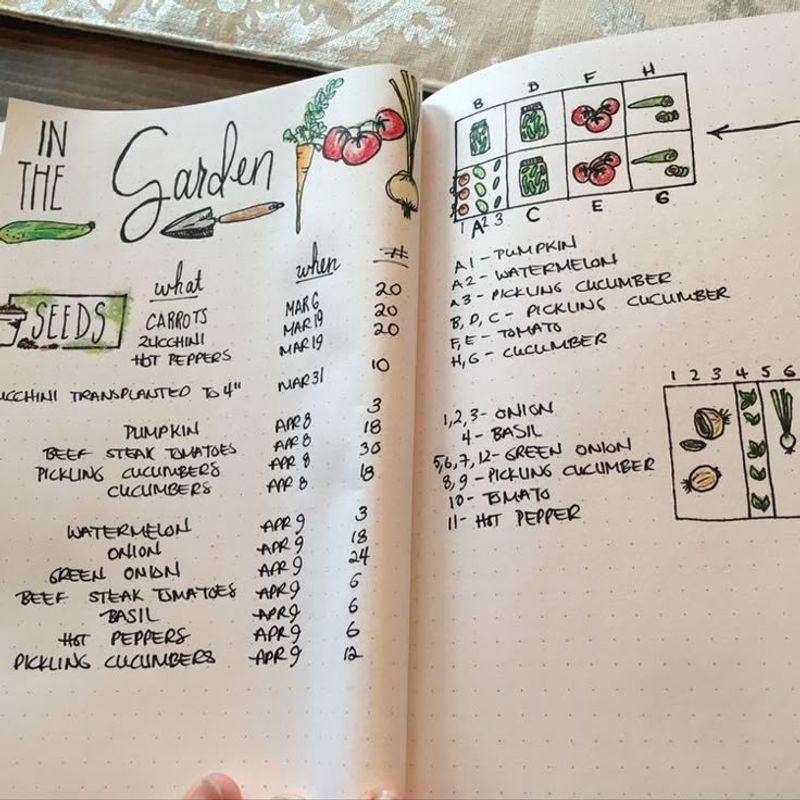 IN
THE
Garden
what when #
SEEDS
CARROTS MAR 6 20
ZUCCHINI MAR 19 20
HOT PEPPERS MAR 19 20
UCCHINI TRANSPLANTED TO 4" MAR 31 10
PUMPKIN APR 8 3
BEEF STEAK TOMATOES APR 8 18
PICKLING CUCUMBERS APR 8 30
CUCUMBERS APR 8 18
WATERMELON APR 9 3
ONION APR 9 18
GREEN ONION APR 9 24
BEEF STEAK TOMATOES APR 9 6
BASIL APR 9 6
HOT PEPPERS APR 9 6
PICKLING CUCUMBERS APR 9 12
B D F H
1 2 3
A C E G
A1 - PUMPKIN
A2 - WATERMELON
A3 - PICKLING CUCUMBER
B, D, C - PICKLING CUCUMBER
F, E - TOMATO
H, G - CUCUMBER
1 2 3 4 5 6
1,2,3 - ONION
4 - BASIL
5,6,7,12 - GREEN ONION
8,9 - PICKLING CUCUMBER
10 - TOMATO
11 - HOT PEPPER